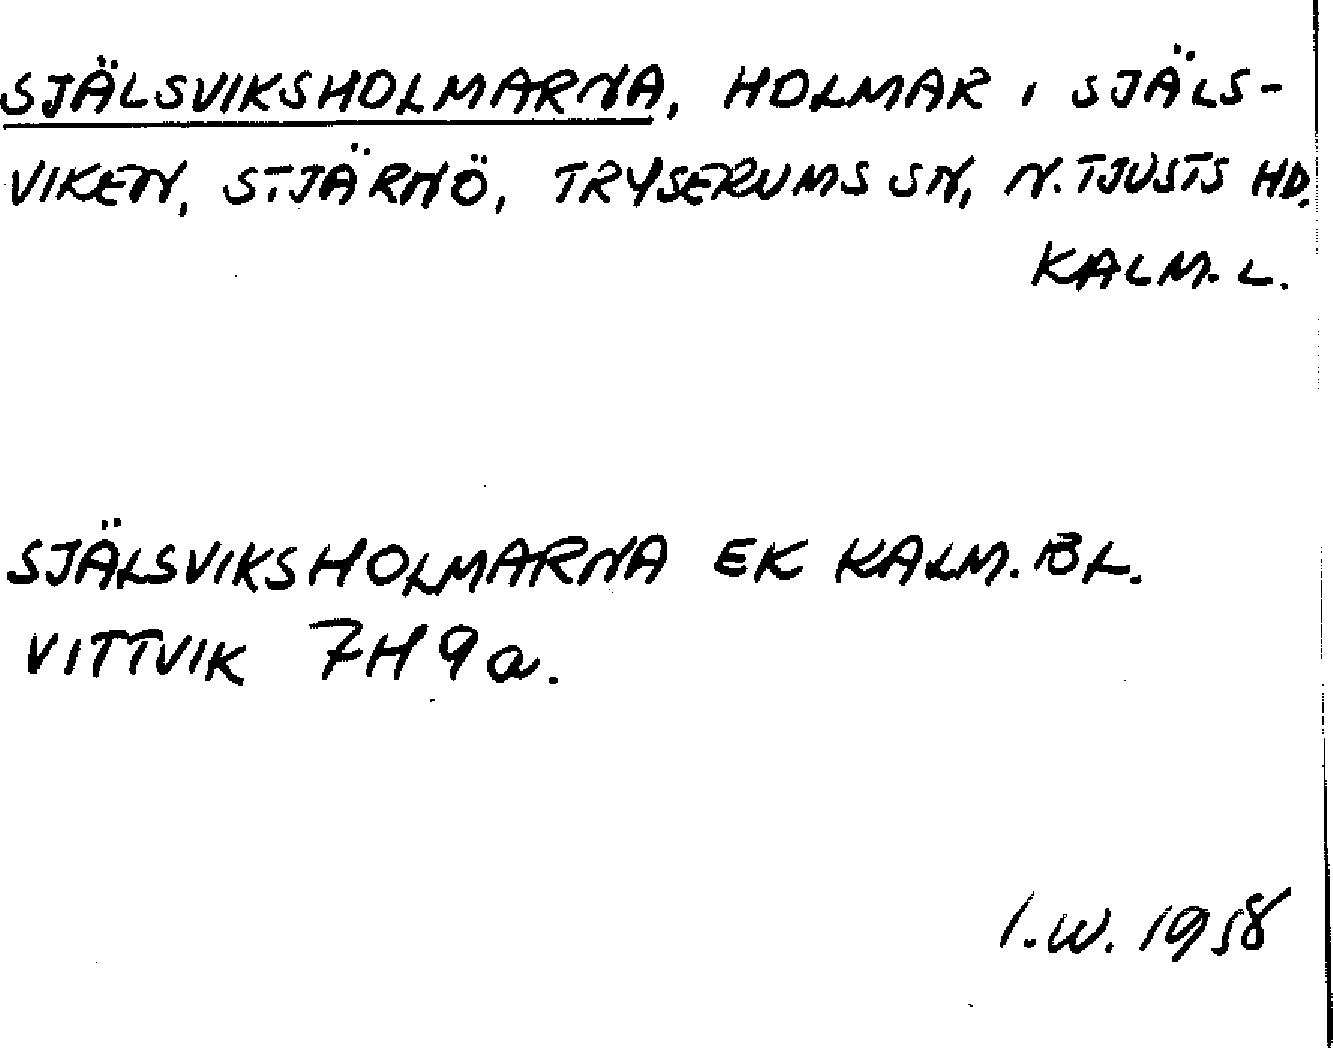 SJÄLSVIKSHOLMARNA, HOLMAR I SJÄLS-
VIKEN, STJÄRNÖ, TRYSERUMS SN, N. TJUSTS HD.
KALM. L.
SJÄLSVIKSHOLMARNA EK KALM. BL.
VITTVIK 7H 9a.
I.W. 1958